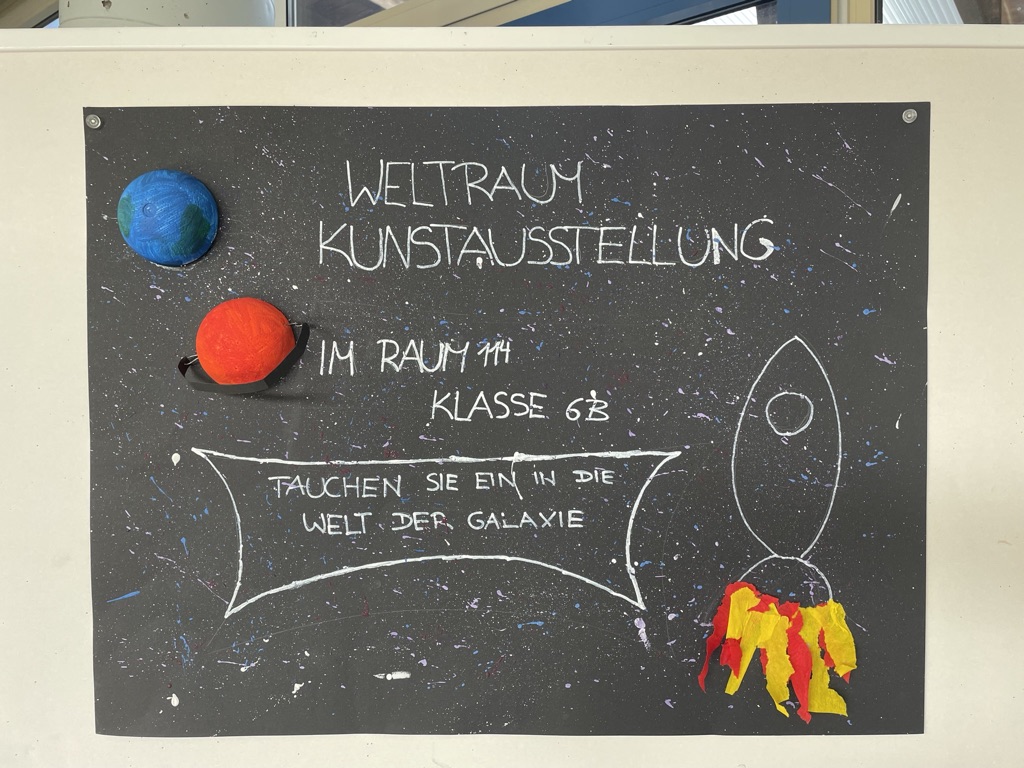 WELTRAUM
KUNSTAUSSTELLUNG
IM RAUM 114
KLASSE 6B
TAUCHEN SIE EIN IN DIE
WELT DER GALAXIE